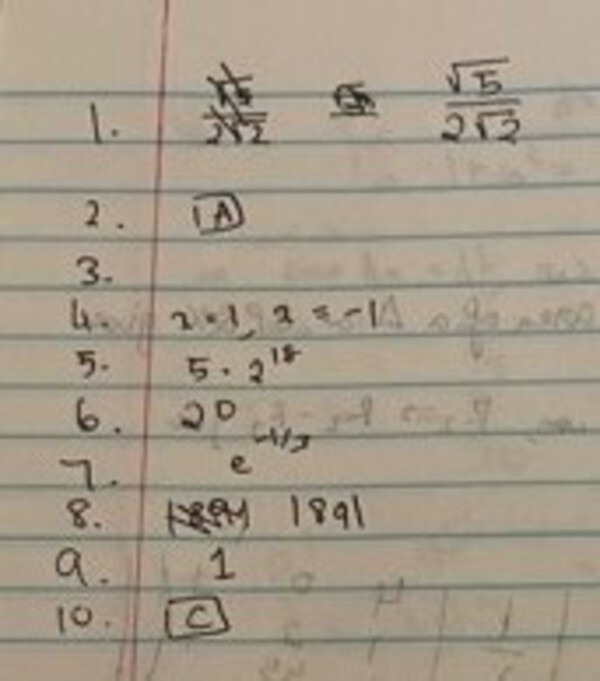 1. √5/2√2
2. A
3.
4. x = 1, x = -1
5. 5 · 2^18
6. 20
7. e^-1/3
8. 1891
9. 1
10. C